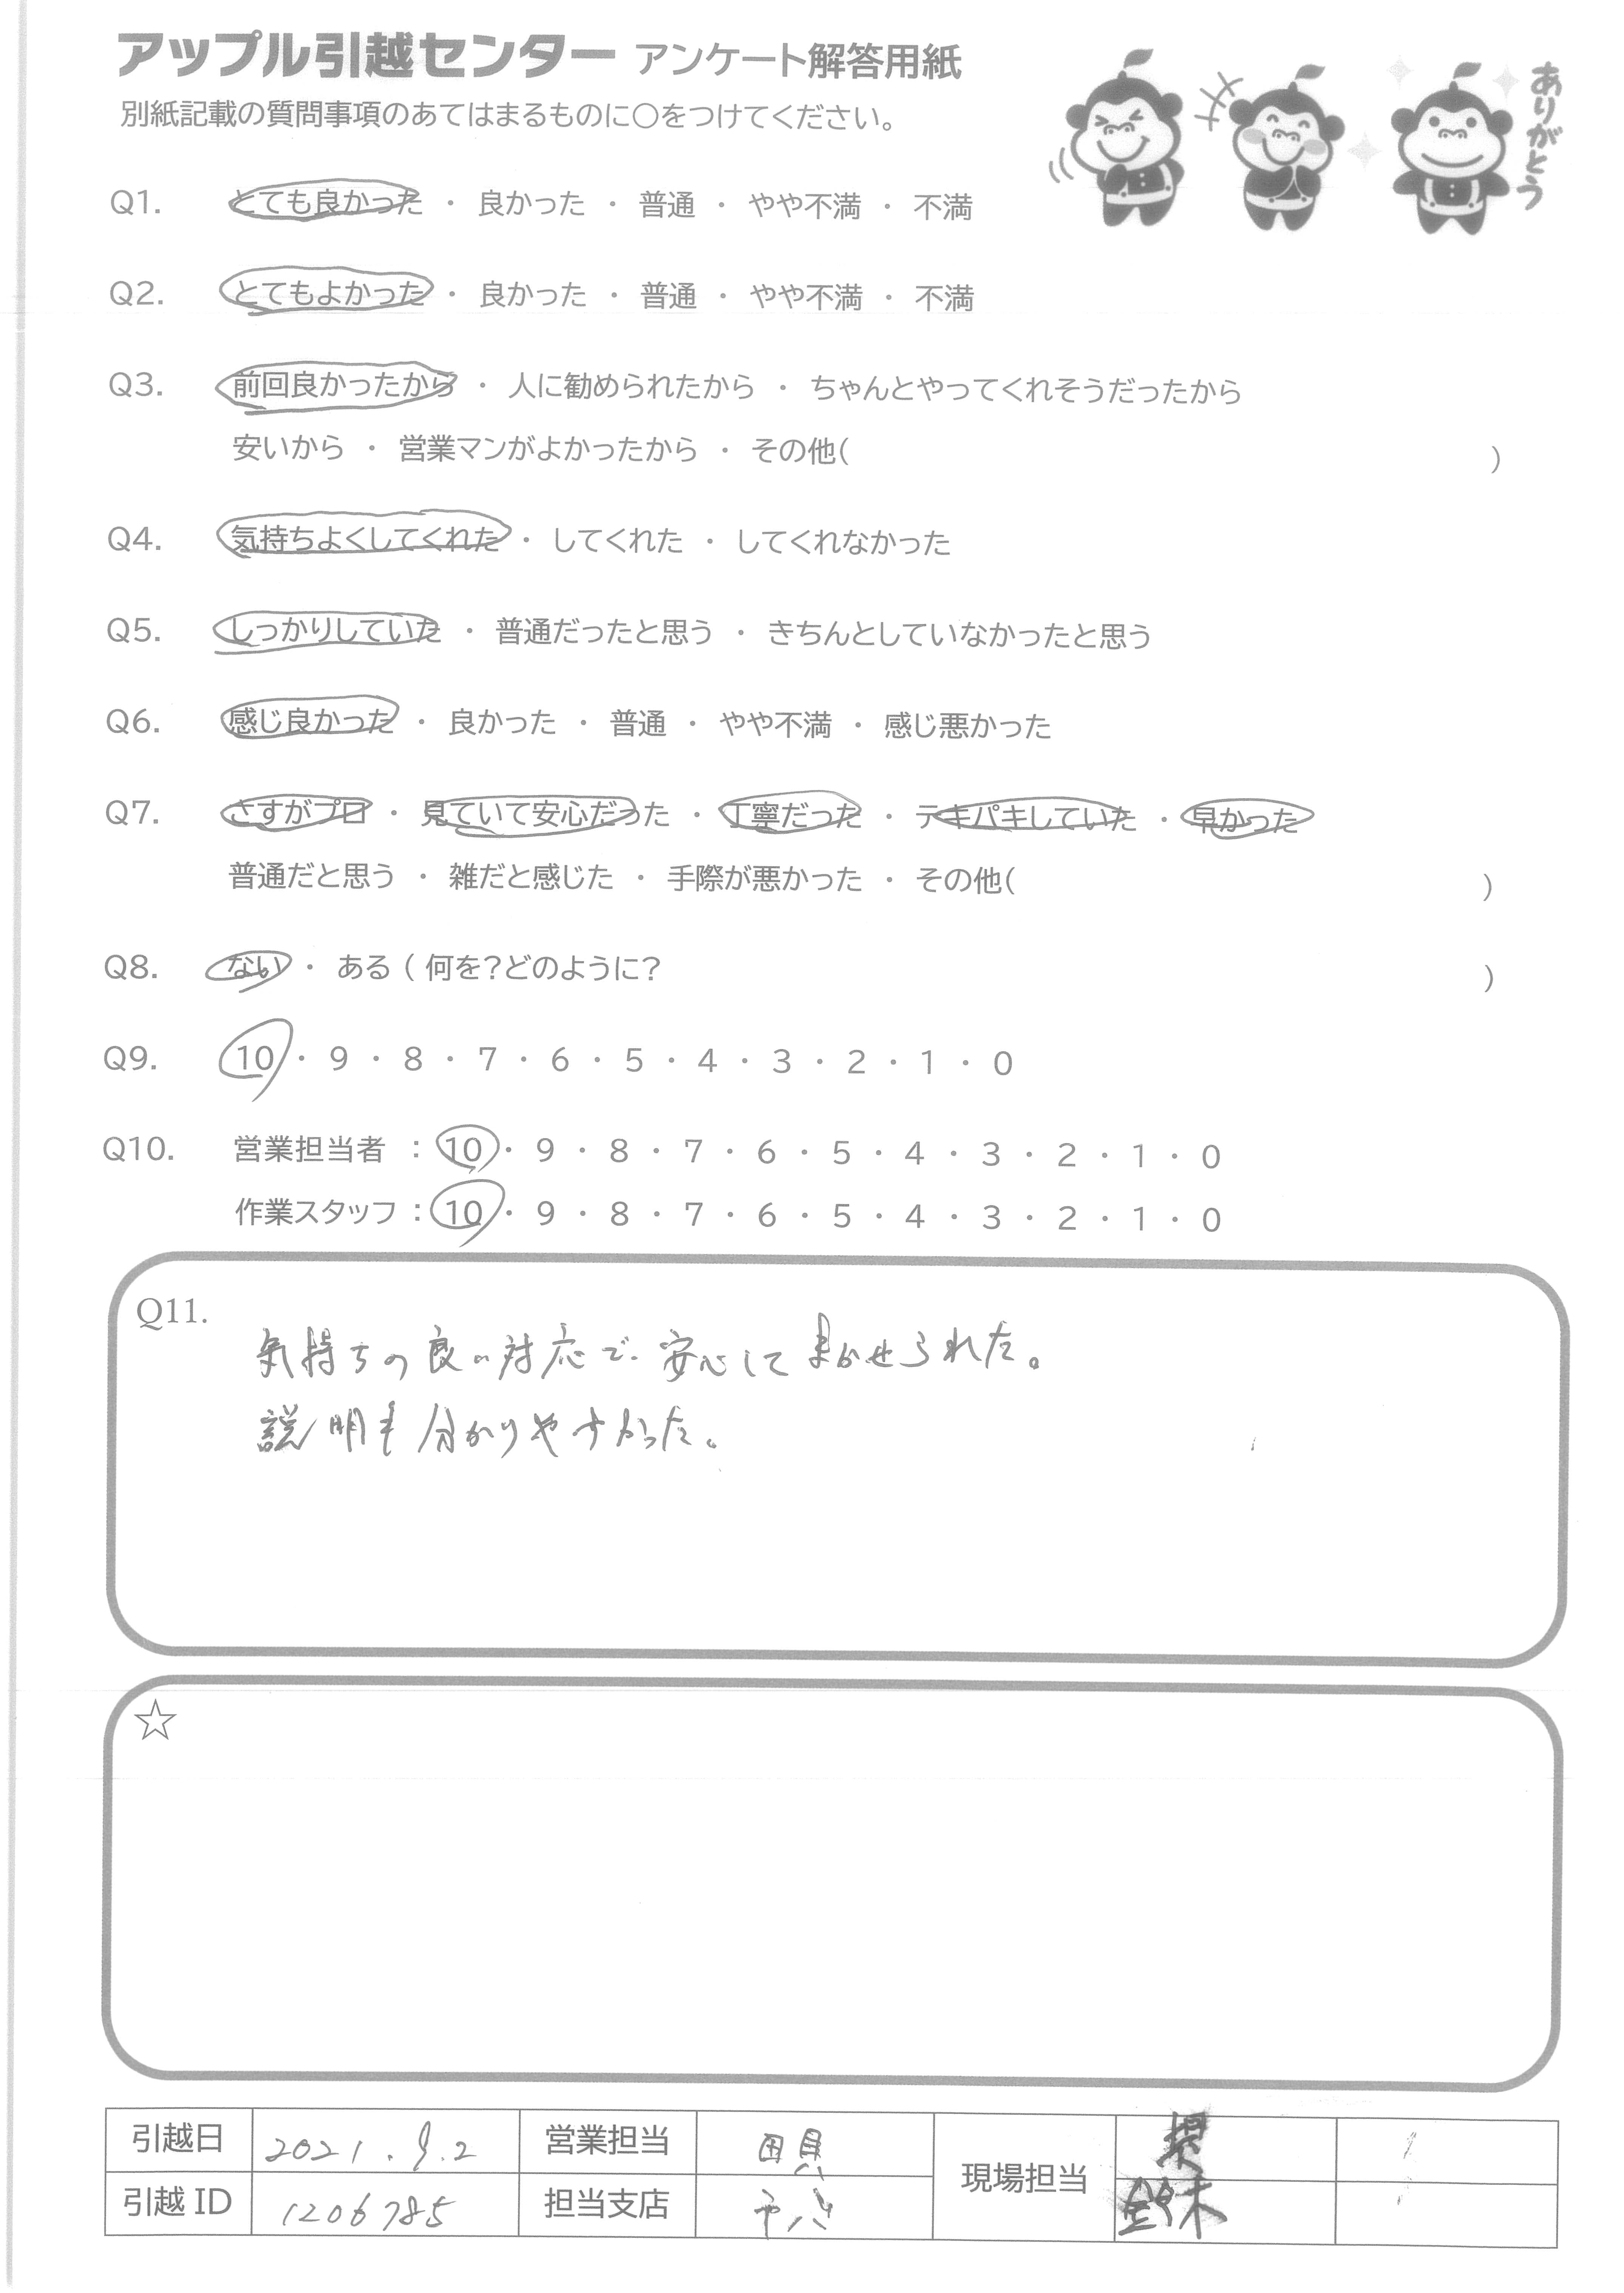 アップル引越センター アンケート解答用紙
ありがとう
別紙記載の質問事項のあてはまるものに○をつけてください。
Q1. とても良かった ・ 良かった ・ 普通 ・ やや不満 ・ 不満
Q2. とてもよかった ・ 良かった ・ 普通 ・ やや不満 ・ 不満
Q3. 前回良かったから ・ 人に勧められたから ・ ちゃんとやってくれそうだったから
安いから ・ 営業マンがよかったから ・ その他( )
Q4. 気持ちよくしてくれた ・ してくれた ・ してくれなかった
Q5. しっかりしていた ・ 普通だったと思う ・ きちんとしていなかったと思う
Q6. 感じ良かった ・ 良かった ・ 普通 ・ やや不満 ・ 感じ悪かった
Q7. さすがプロ ・ 見ていて安心だった ・ 丁寧だった ・ テキパキしていた ・ 早かった
普通だと思う ・ 雑だと感じた ・ 手際が悪かった ・ その他( )
Q8. ない ・ ある ( 何を?どのように? )
Q9. 10 ・ 9 ・ 8 ・ 7 ・ 6 ・ 5 ・ 4 ・ 3 ・ 2 ・ 1 ・ 0
Q10. 営業担当者 : 10 ・ 9 ・ 8 ・ 7 ・ 6 ・ 5 ・ 4 ・ 3 ・ 2 ・ 1 ・ 0
作業スタッフ : 10 ・ 9 ・ 8 ・ 7 ・ 6 ・ 5 ・ 4 ・ 3 ・ 2 ・ 1 ・ 0
Q11.
気持ちの良い対応で安心してまかせられた。
説明も分かりやすかった。
☆
引越日 2021.9.2 営業担当 現場担当
引越ID 1206785 担当支店 鈴木